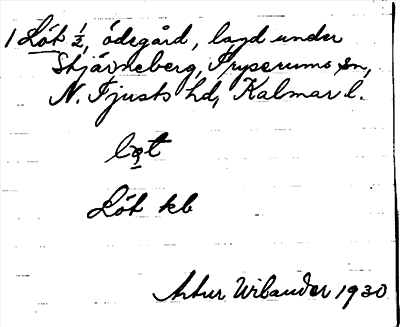 1 Löt ½, ödegård, lagd under
Stjärneberg, Tryserums sn,
N. Tjusts hd, Kalmar l.
lø̨t
Löt kb
Artur Wilander 1930